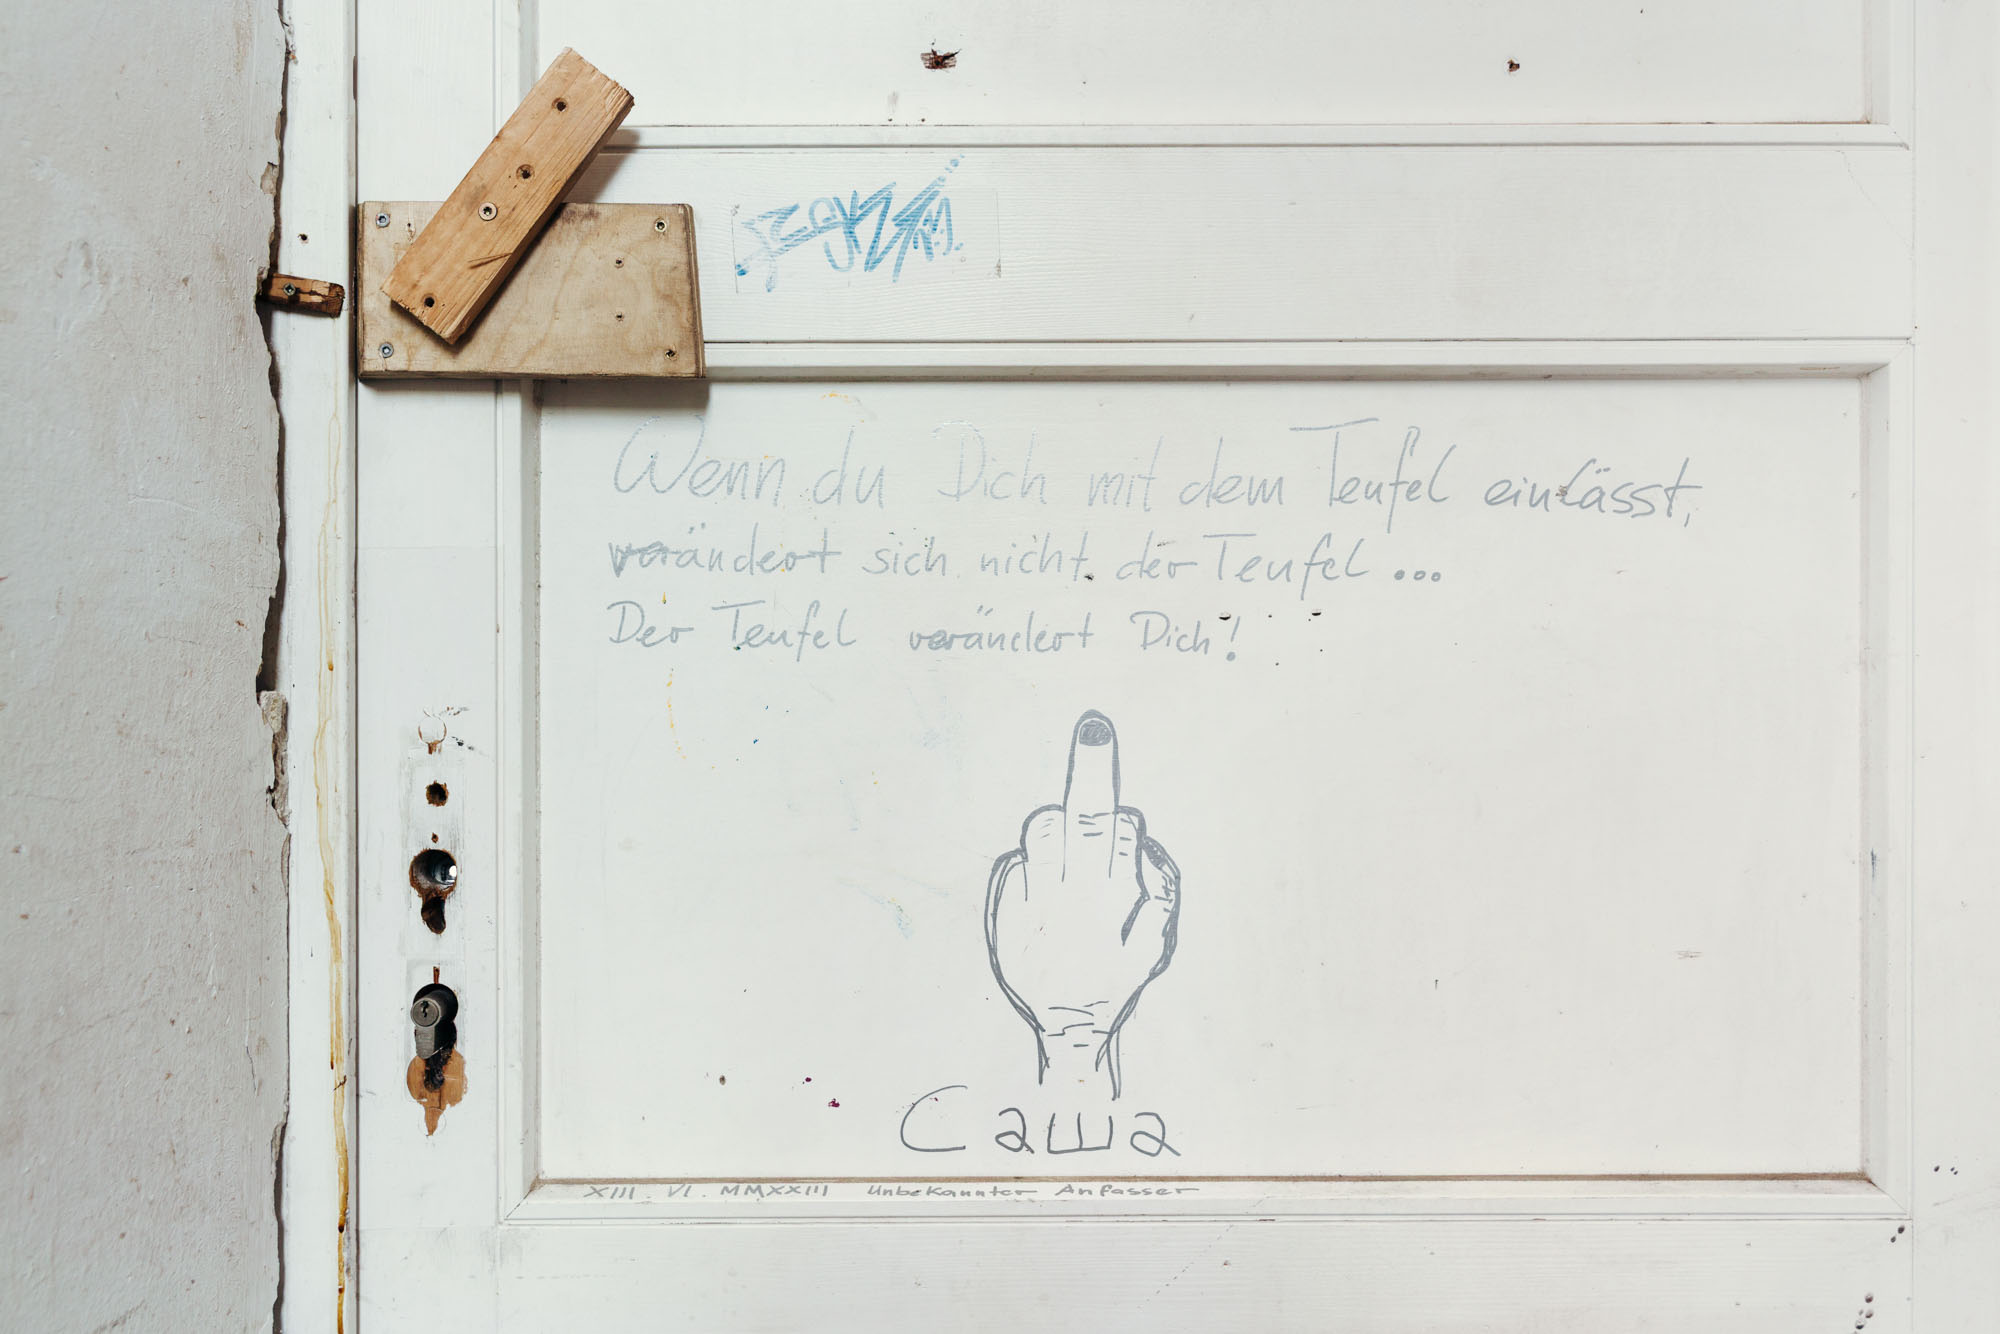 Wenn du Dich mit dem Teufel einlässt,
verändert sich nicht der Teufel...
Der Teufel verändert Dich!
Саша
XIII. VI. MMXXIII Unbekannter Anfasser